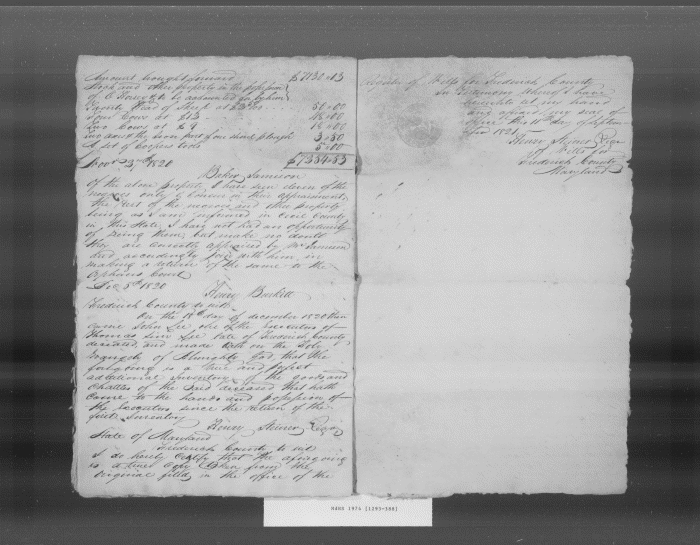 Amount brought forward $7130.13
Stock and other property in the possession
of to be accounted for by him
Twenty Head of Sheep at 50.00
four Cows at $12 48.00
two Cows at $9 18.00
two axes the iron part of one shovel plough 3.50
A set of Coopers tools 5.00
Novr 23rd 1820
Baker Jamison
Of the above property, I have seen eleven of the
only & concur in their appraisement,
the rest of the negroes and other property
being as I am informed in Cecil County
in this State, I have not had an opportunity
of seeing them, but make no doubt
they are correctly appraised by Mr Jamison
and accordingly join with him in
making a return of the same to the
Orphans Court
Dec 8th 1820
Henry Burkitt
Frederick County to wit
On the day of december 1820 then
came John Lee one of the Executors of
Thomas Sim Lee late of Frederick County
deceased, and made Oath on the Holy
Evangely of Almighty God, that the
foregoing is a true and perfect
additional Inventory of the goods and
Chattles of the said deceased that hath
came to the hands and possession of
the Executors since the return of the
first Inventory
Henry Steiner Regr
State of Maryland
Frederick County to wit
I do hereby Certify that the aforegoing
is a true Copy taken from the
original filed in the office of the
register of Wills for Frederick County
In testimony whereof I have
hereunto set my hand
and affixed my seal of
office this day of
1821
Henry Steiner Regr
of Wills for
Frederick County
Maryland
MdHR 1975 [1293-388]